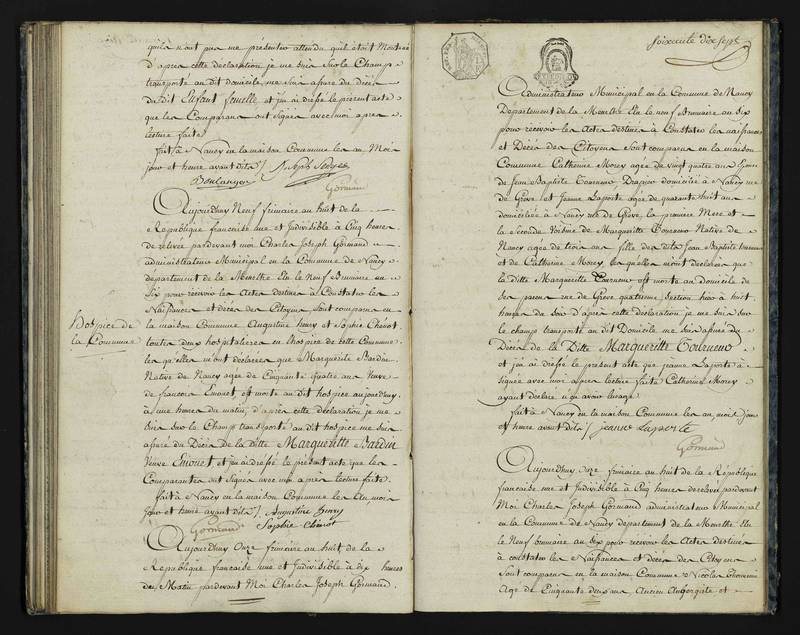 qu'ils n'ont pu me présenter attendu qu'il étoit Mortné
d'après cette déclaration je me suis Sur le Champ
transporté au dit domicile, me suis assuré du Décès
du dit Enfant femelle et j'ai dressé le présent acte
que les Comparans ont signés avec moi après
lecture faite
fait à Nancy en la maison Commune les an Mois
jour et heure avant dits /. Joseph
Boulanger
Gormand
Aujourdhuy Neuf frimaire an huit de la
République française une et Indivisible à Cinq heures
de relevée pardevant moi Charles Joseph Gormand
administrateur Municipal en la Commune de Nancy
département de la Meurthe Elu le neuf Brumaire an
Six pour recevoir les Actes destinés à Constater les
Naissances et décès des Citoyens, sont comparus en
la maison Commune Augustine henry et Sophie Chenot
toutes deux hospitalieres en l'hospice de cette Commune
Hospice de
la Commune
lesquelles m'ont déclarées que Marguerite Bardin
Native de Nancy agée de Cinquante quatre ans Veuve
de francois Emonet est morte au dit hospice aujourdhuy
à une heure du matin, d'après cette déclaration je me
suis sur le Champ transporté au dit hospice me suis
assuré du Décès De la ditte Margueritte Bardin
Veuve Emonet et j'ai dressé le présent acte que les
Comparantes ont signés avec moi apres lecture faite
fait à Nancy en la maison Commune les An, mois
jour et heure avant dits /. Augustine henry
Gormand Sophie Chenot
Aujourdhuy Onze frimaire an huit de la
République française une et Indivisible à dix heures
du Matin pardevant Moi Charles Joseph Gormand.
Soixante dix Sept
Administrateur Municipal en la Commune de Nancy
Département de la Meurthe Elu le neuf Brumaire an Six
pour recevoir les Actes destinés à Constater les naissances
et Décès des Citoyens sont comparus en la maison
Commune Catherine Morey agée de Vingt quatre ans
de Jean Baptiste Tourneur Drapier domiciliée à Nancy rue
de Grève et Jeanne Laporte agée de quarante huit ans
domiciliée à Nancy rue de Grève, la première Mere et
la Seconde Voisine de Margueritte Tourneur Native de
Nancy agée de trois ans fille des dits Jean Baptiste Tourneur
et de Catherine Morey lesquelles m'ont déclarées que
la ditte Margueritte Tourneur est morte au domicile de
ses parens rue de Grève quatrieme Section hier à huit
heures du soir d'après cette déclaration je me suis sur
le champ transporté au dit Domicile me suis assuré du
Décès de la Ditte Margueritte Tourneur
et j'ai dressé le présent acte que Jeanne Laporte à
signée avec moi apres lecture faite Catherine Morey
ayant déclaré n'en avoir l'usage
fait à Nancy en la maison Commune les an, mois jour
et heure avant dits /. jeanne Laporte
Gormand
Aujourdhuy Onze frimaire an huit de la République
française une et Indivisible à Cinq heures de relevé pardevant
Moi Charles Joseph Gormand administrateur Municipal
en la Commune de Nancy département de la Meurthe Elu
le Neuf brumaire an Six pour recevoir les Actes destinés
à constater les Naissances et décès des Citoyens
Sont comparus en la maison Commune Nicolas
Agé de Cinquante deux ans Ancien Aubergiste et